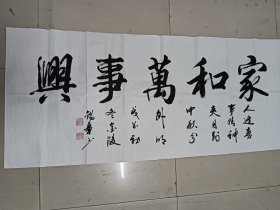 家和萬事興
人逢喜
事精神
爽月到
中秋分
外明
戊子初
冬金陵